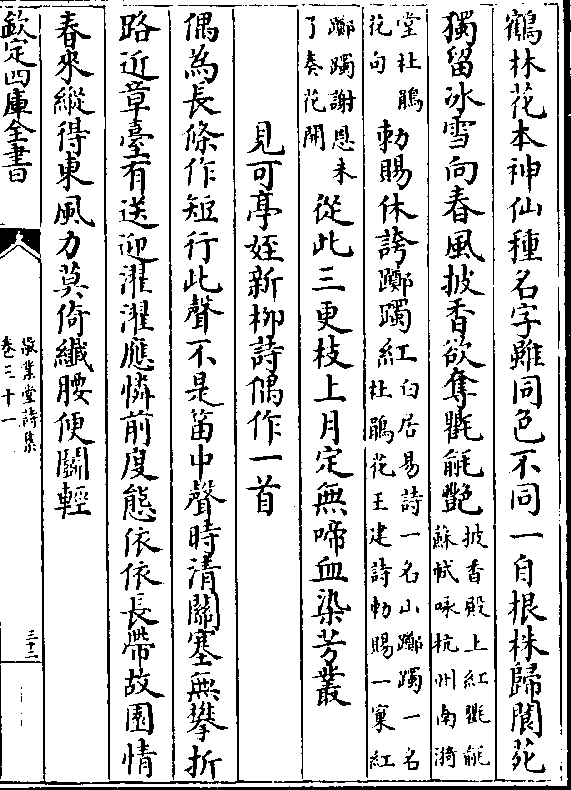 鶴林花本神仙種名字雖同色不同一自根株歸閬苑
獨留冰雪向春風披香欲奪氍毹艷披香殿上紅氍毹蘇軾咏杭州南漪
堂杜鵑花句勅賜休誇躑躅紅白居易詩一名山躑躅一名杜鵑花王建詩勅賜一窠紅
躑躅謝恩未了奏花開從此三更枝上月定無啼血染芳叢
見可亭姪新柳詩偶作一首
偶為長條作短行此聲不是笛中聲時清關塞無攀折
路近章臺有送迎濯濯應憐前度態依依長帶故園情
春來縱得東風力莫倚纖腰便鬭輕
欽定四庫全書
敬業堂詩集
卷三十一
三十二